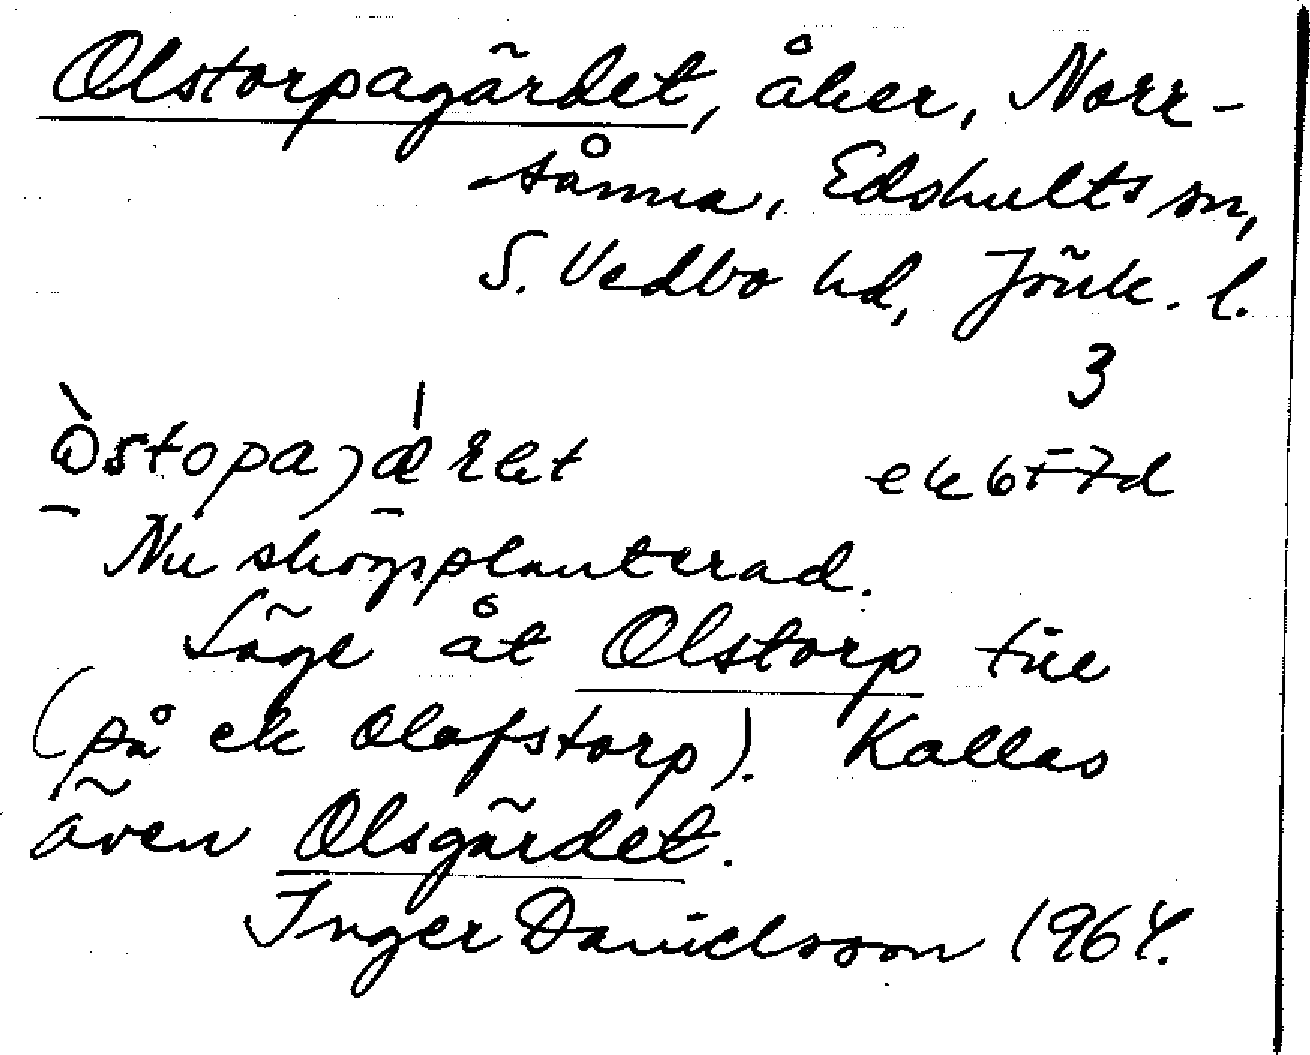 Olstorpagärdet, åker, Norr-
sånna, Edshults sn,
S. Vedbo hd, Jönk. l.
3
ek 6F7d
Nu skogsplanterad.
Läge åt Olstorp till
(på ek Olofstorp). Kallas
även Olsgärdet.
Inger Danielsson 1964.